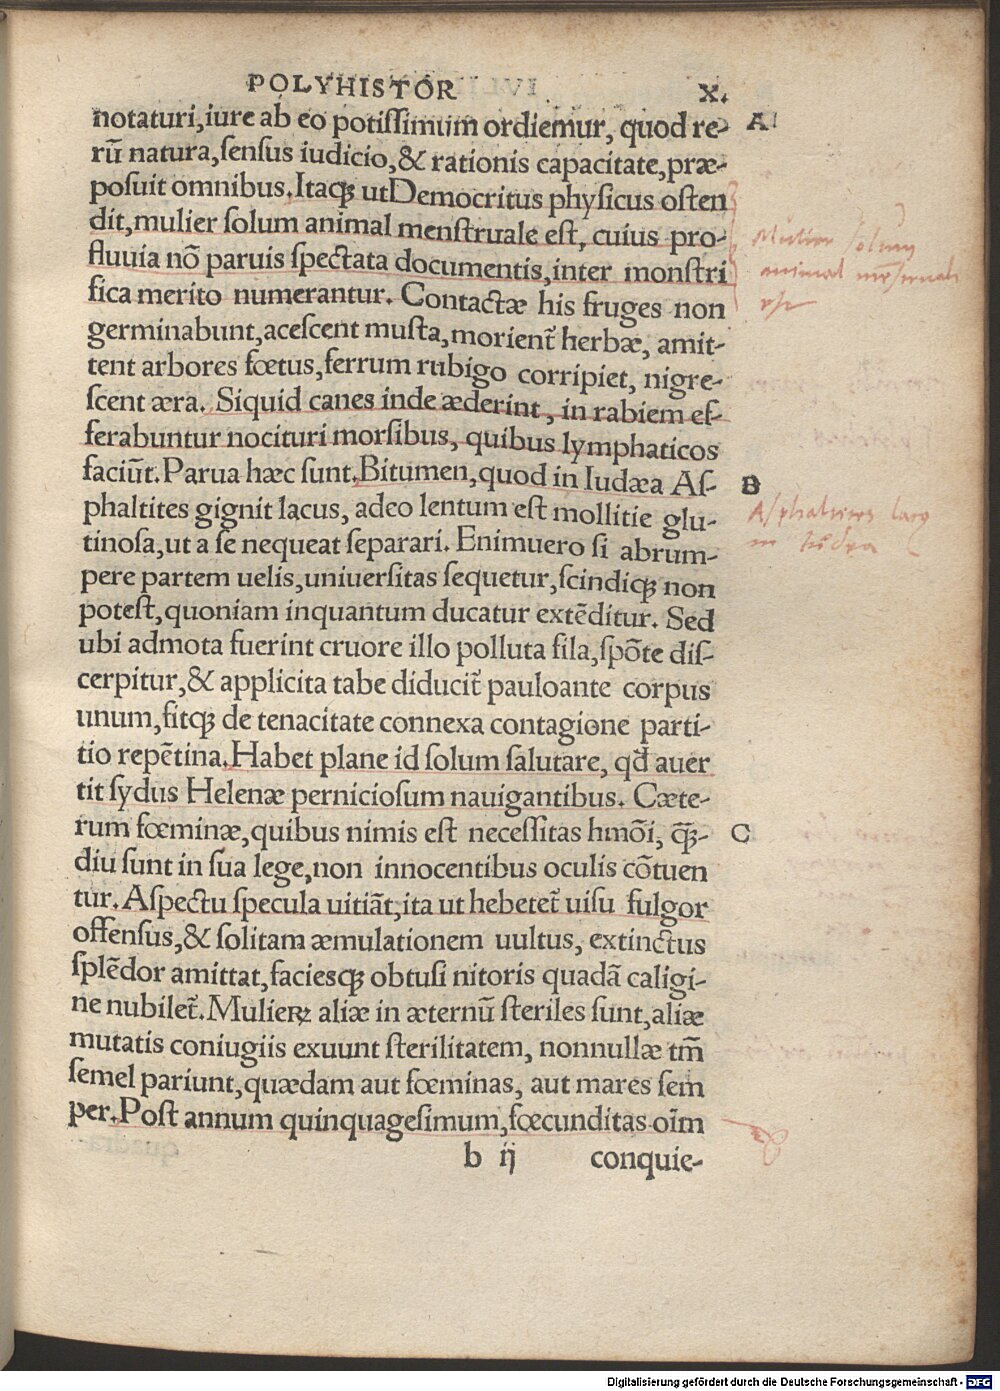 POLYHISTOR X.
notaturi,iure ab eo potiſſimum ordiemur, quod re- A
rū natura,ſenſus iudicio,& rationis capacitate,præ-
poſuit omnibus.Itaqꝫ ut Democritus phyſicus oſten
dit,mulier ſolum animal menſtruale eſt, cuius pro-
fluuia nō paruis ſpectata documentis,inter monſtri
fica merito numerantur. Contactæ his fruges non
germinabunt,aceſcent muſta,morient̄ herbæ, amit-
tent arbores fœtus,ferrum rubigo corripiet, nigre-
ſcent æra. Siquid canes inde æderint, in rabiem ef-
ferabuntur nocituri morſibus, quibus lymphaticos
faciūt.Parua hæc ſunt.Bitumen,quod in Iudæa Aſ- B
phaltites gignit lacus, adeo lentum eſt mollitie glu-
tinoſa,ut a ſe nequeat ſeparari. Enimuero ſi abrum-
pere partem uelis,uniuerſitas ſequetur,ſcindiqꝫ non
poteſt,quoniam inquantum ducatur extēditur. Sed
ubi admota fuerint cruore illo polluta fila,ſpōte diſ-
cerpitur,& applicita tabe diducit̄ pauloante corpus
unum,fitqꝫ de tenacitate connexa contagione parti-
tio repētina.Habet plane id ſolum ſalutare, qd̄ auer
tit ſydus Helenæ pernicioſum nauigantibus. Cæte-
rum fœminæ,quibus nimis eſt neceſſitas hmōi, q̄ꝫ- C
diu ſunt in ſua lege,non innocentibus oculis cōtuen
tur.Aſpectu ſpecula uitiāt,ita ut hebetet̄ uiſu fulgor
offenſus,& ſolitam æmulationem uultus, extinctus
ſplēdor amittat,facieſqꝫ obtuſi nitoris quadā caligi-
ne nubilet̄.Mulieꝝ aliæ in æternū ſteriles ſunt,aliæ
mutatis coniugiis exuunt ſterilitatem, nonnullæ tm̄
ſemel pariunt,quædam aut fœminas, aut mares ſem
per.Poſt annum quinquageſimum,fœcunditas oīm
b ij conquie-
Mulier ſolum
animal
Digitalisierung gefördert durch die Deutsche Forschungsgemeinschaft - DFG